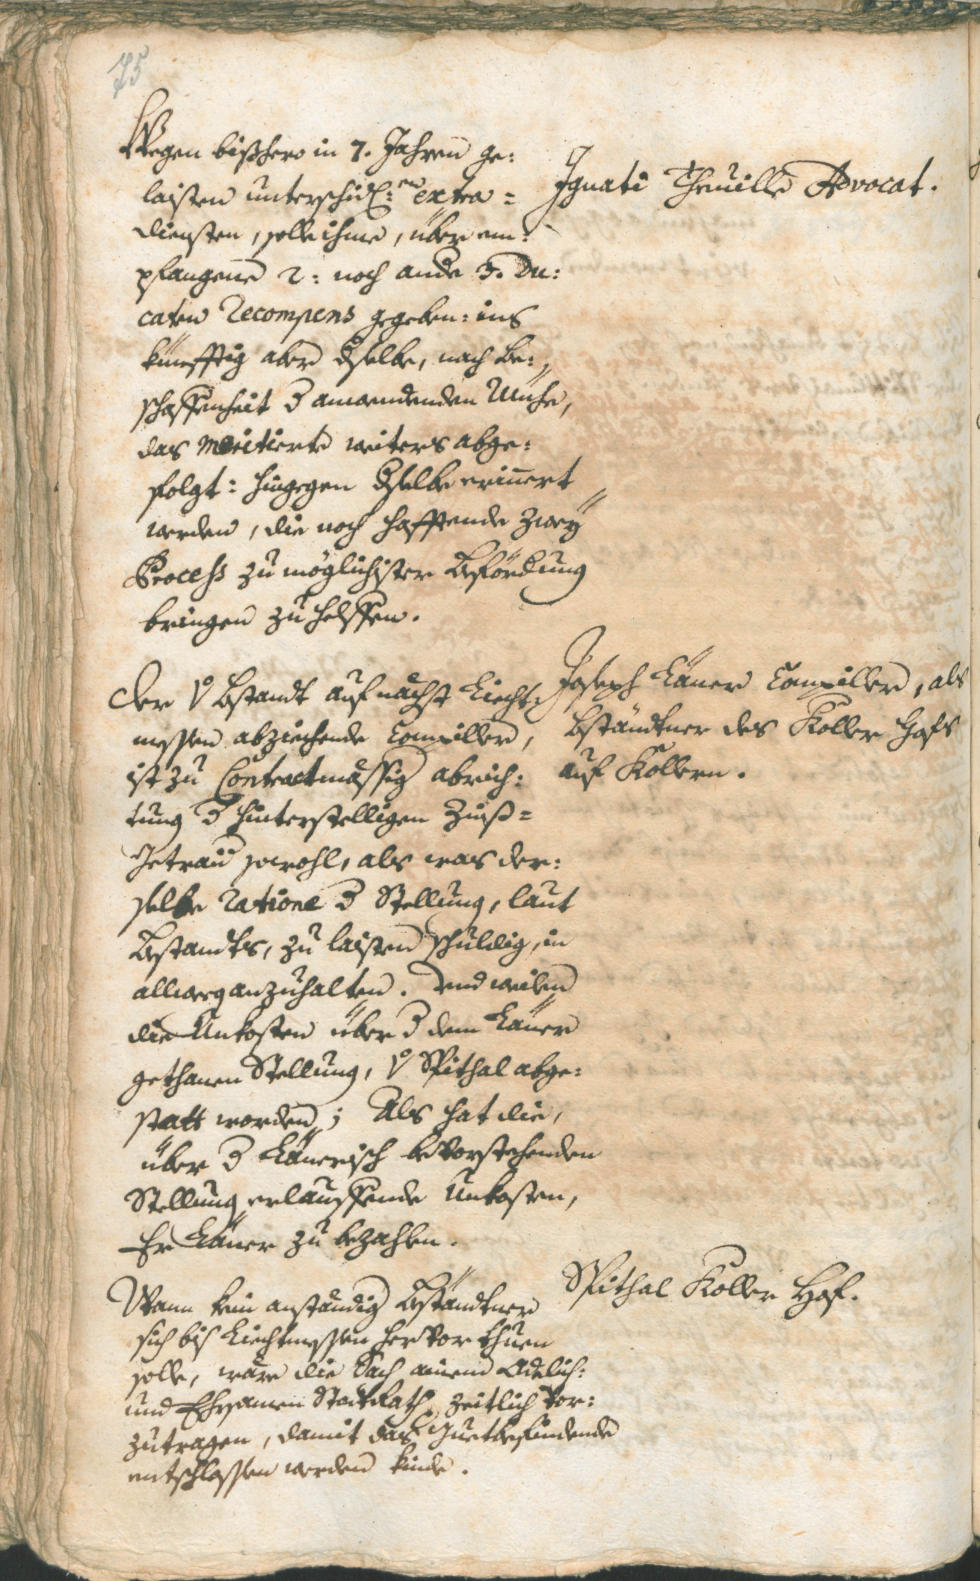 75
Wegen bißhero in 7. Jahren ge:
laisten unterschidl:en extra=
diensten, solle ihme, über em:
pfangene 2: noch ande 3. Du:
caten Recompens gegeben: ins
künfftig aber dselbe, nach be:
schaffenheit d anwendenden Mühe,
das Meritierte weiters abge:
folgt: hingegen dselbe erinnert
werden, die noch hafftende zwey
Process zu möglichister Befördung
bringen zu helffen.
Ignati Theuille Advocat.
Der v Bstandt auf nächst Liecht
messen abziechende Compiller,
ist zu Contractmässig abrich:
tung d hinterstelligen Zinß=
Getraid sowohl, als was der:
selbe ratione d Stellung, laut
Bstandts, zu laisten schuldig, in
allweg anzuhalten. Und weilen
die Unkosten über d dem Läner
gethanen Stellung, v Spithal abge:
statt worden; Als hat die,
über d Länerisch bevorstehenden
Stellung erlauffende Unkosten,
Er Läner zu bezahlen.
Joseph Läner Compiller, als
Bständtner des Koller Hofs
auf Kollern.
Wann kein anständig Bständtner
sich bis Liechtmessen hervor thuen
solle, wäre die Sach ainem Adelich:
und Ehrsamen Stattrath zeitlich vor:
zutragen, damit das Guetbefundende
entschlossen werden kinde.
Spithal Koller Hof.